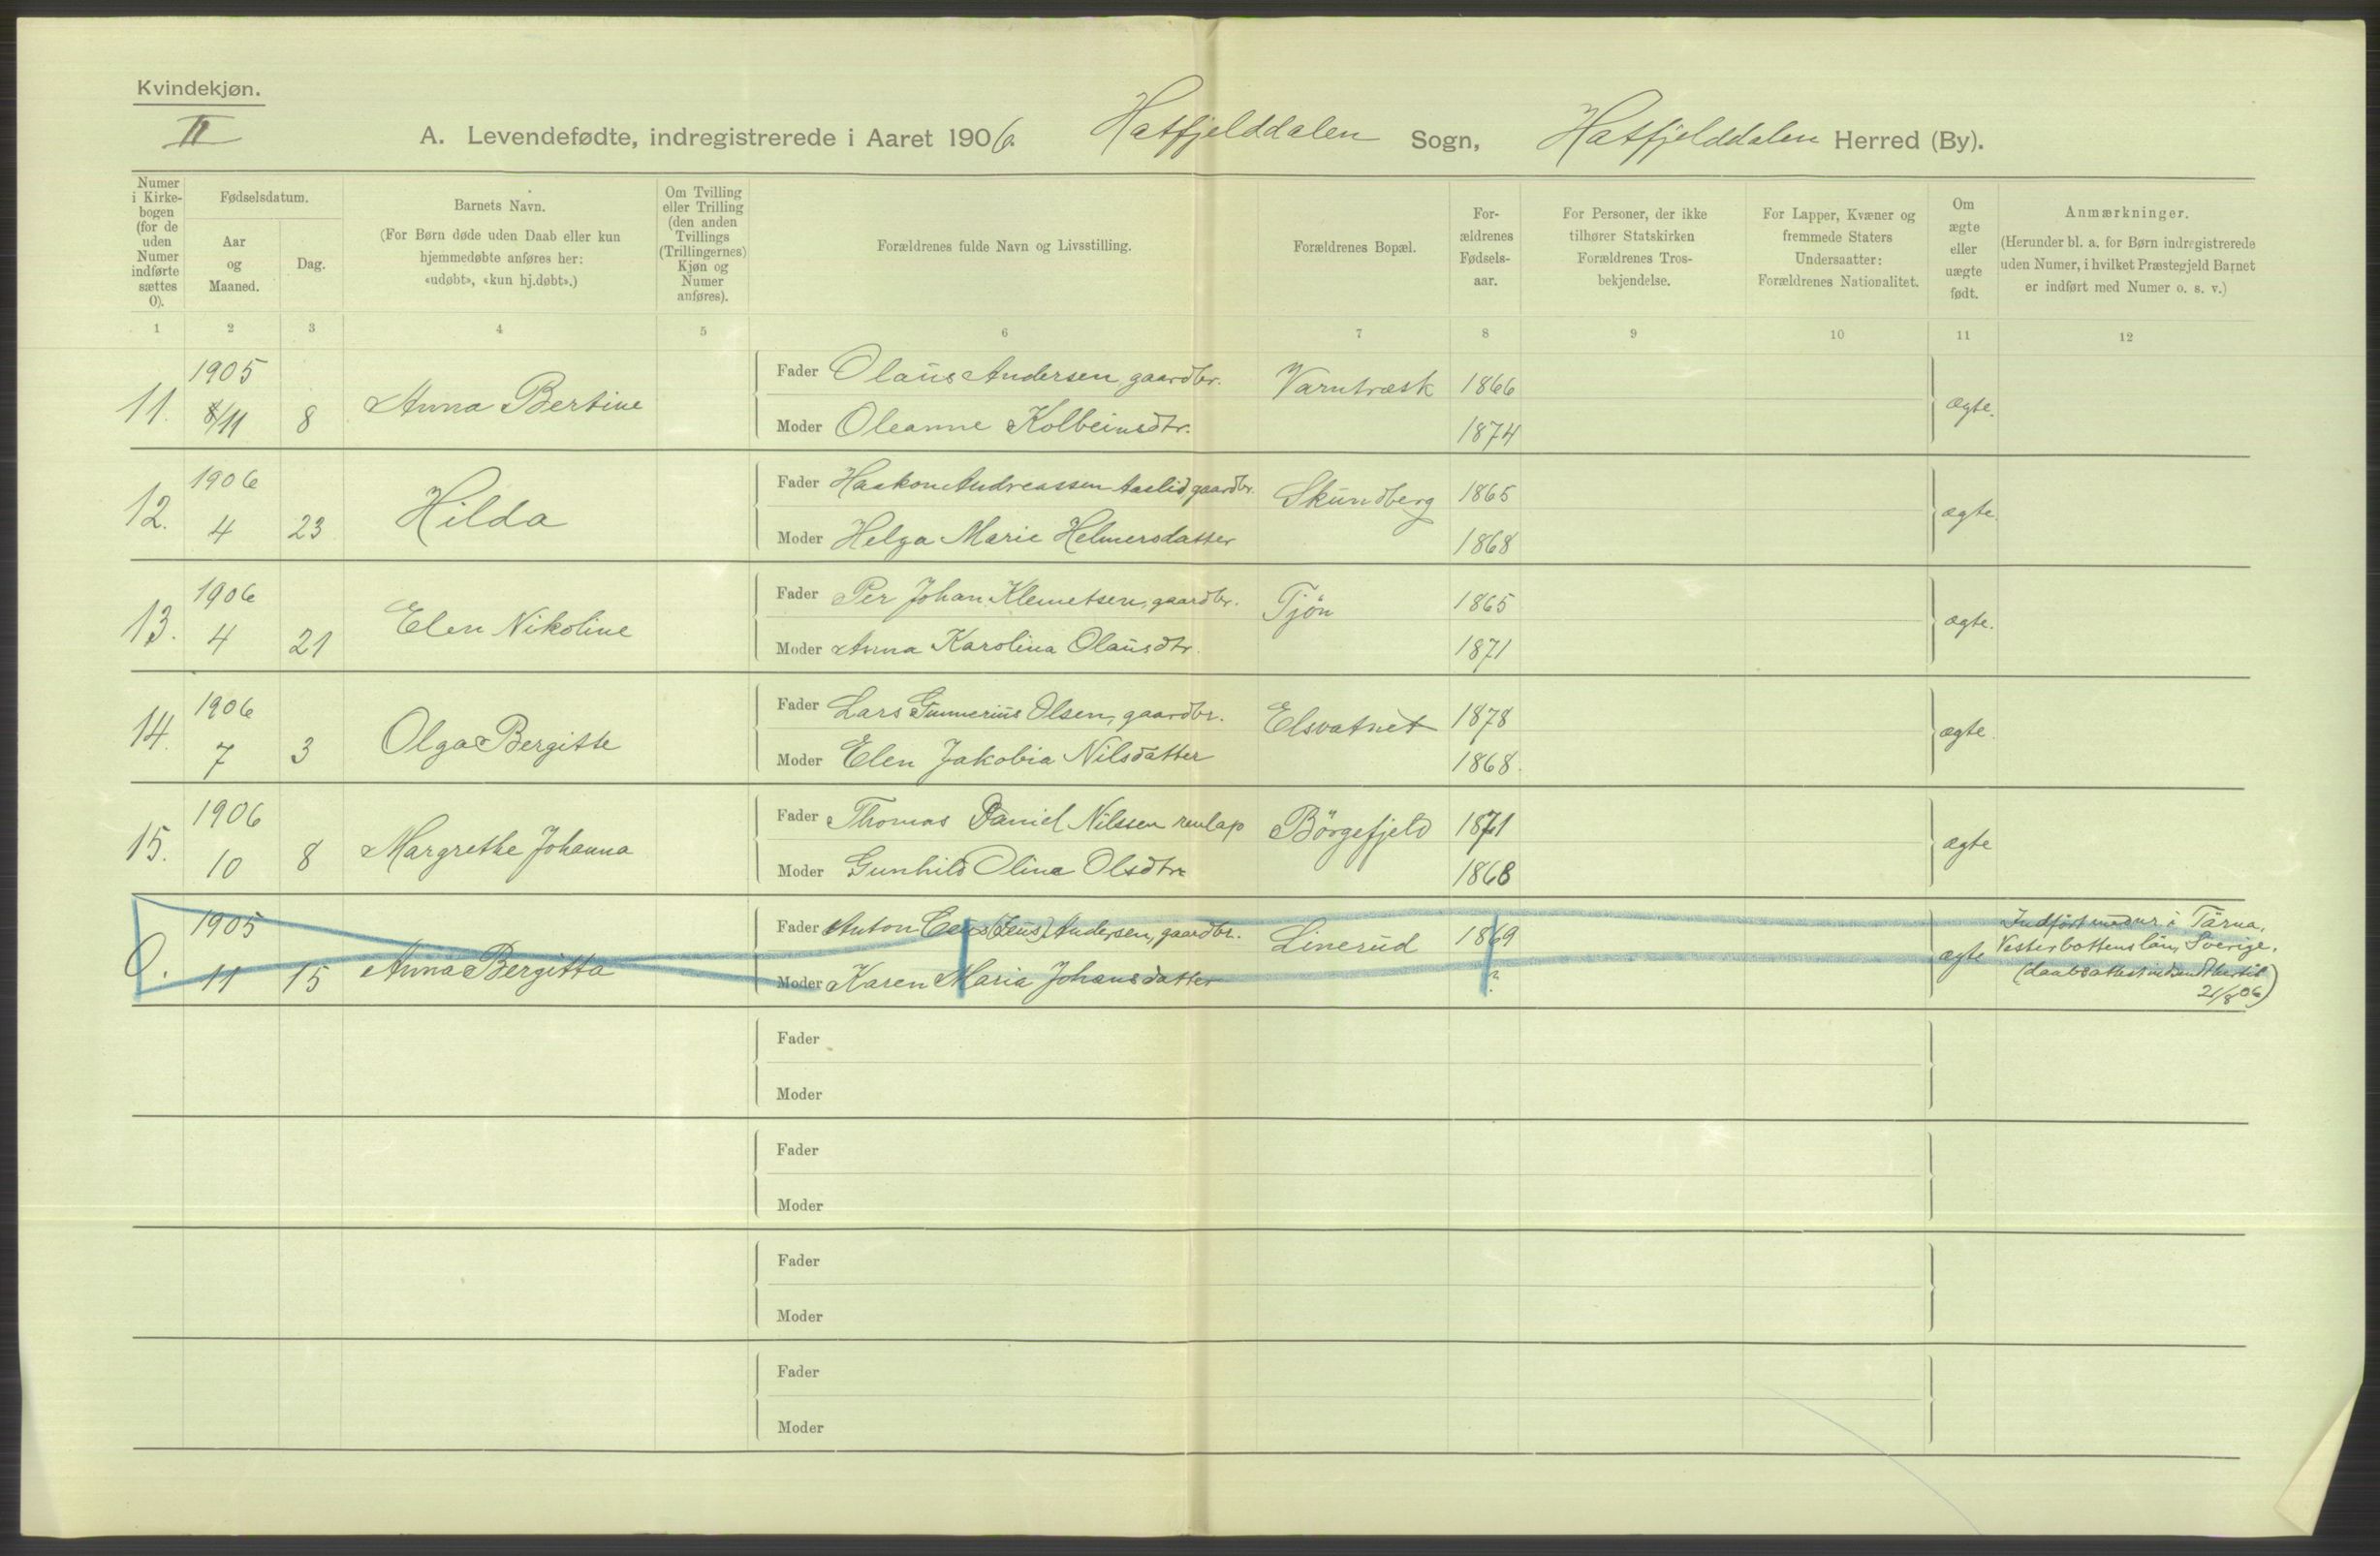 Kvindekjøn.
II
A. Levendefødte, indregistrerede i Aaret 1906. Hatfjelddalen Sogn, Hatfjelddalen Herred (By).
Numer i Kirke-bogen (for de uden Numer indførte sættes 0).
Fødselsdatum.
Aar og Maaned.
Dag.
Barnets Navn.
(For Børn døde uden Daab eller kun
hjemmedøbte anføres her:
«udøbt», «kun hj.døbt».)
Om Tvilling
eller Trilling
(den anden
Tvillings
(Trillingernes)
Kjøn og
Numer
anføres).
Forældrenes fulde Navn og Livsstilling.
Forældrenes Bopæl.
For-
ældrenes
Fødsels-
aar.
For Personer, der ikke
tilhører Statskirken
Forældrenes Tros-
bekjendelse.
For Lapper, Kvæner og
fremmede Staters
Undersaatter:
Forældrenes Nationalitet.
Om
ægte
eller
uægte
født.
Anmærkninger.
(Herunder bl. a. for Børn indregistrerede
uden Numer, i hvilket Præstegjeld Barnet
er indført med Numer o. s. v.)
1 2 3 4 5 6 7 8 9 10 11 12
11. 1905 8/11 8 Anna Bertine
Fader Olaus Andersen, gaardbr. Varntræsk 1866
Moder Oleanne Kolbeinsdtr. 1874 ægte.
12. 1906 4 23 Hilda
Fader Haakon Andreassen Aaslid, gaardbr. Skundberg 1865
Moder Helga Marie Helmersdatter 1868 ægte.
13. 1906 4 21 Elen Nikoline
Fader Per Johan Klemetsen, gaardbr. Tjön 1865
Moder Anna Karolina Olausdtr. 1871 ægte.
14. 1906 7 3 Olga Bergitte
Fader Lars Gunnerius Olsen, gaardbr. Elsvatnet 1878
Moder Elen Jakobia Nilsdatter 1868. ægte.
15. 1906 10 8 Margrethe Johanna
Fader Thomas Daniel Nilssen renlap Börgefjeld 1871
Moder Gunhild Olina Olsdtr. 1868 ægte
0. 1905 11 15 Anna Bergitta
Fader Anton (Zeus) Andersen, gaardbr. Linerud 1869
Moder Karen Maria Johansdatter ? ægte
Indført med nr i Tärna,
Vesterbottens län, Sverige.
(daabsattest hertil
21/8 06)
Fader
Moder
Fader
Moder
Fader
Moder
Fader
Moder